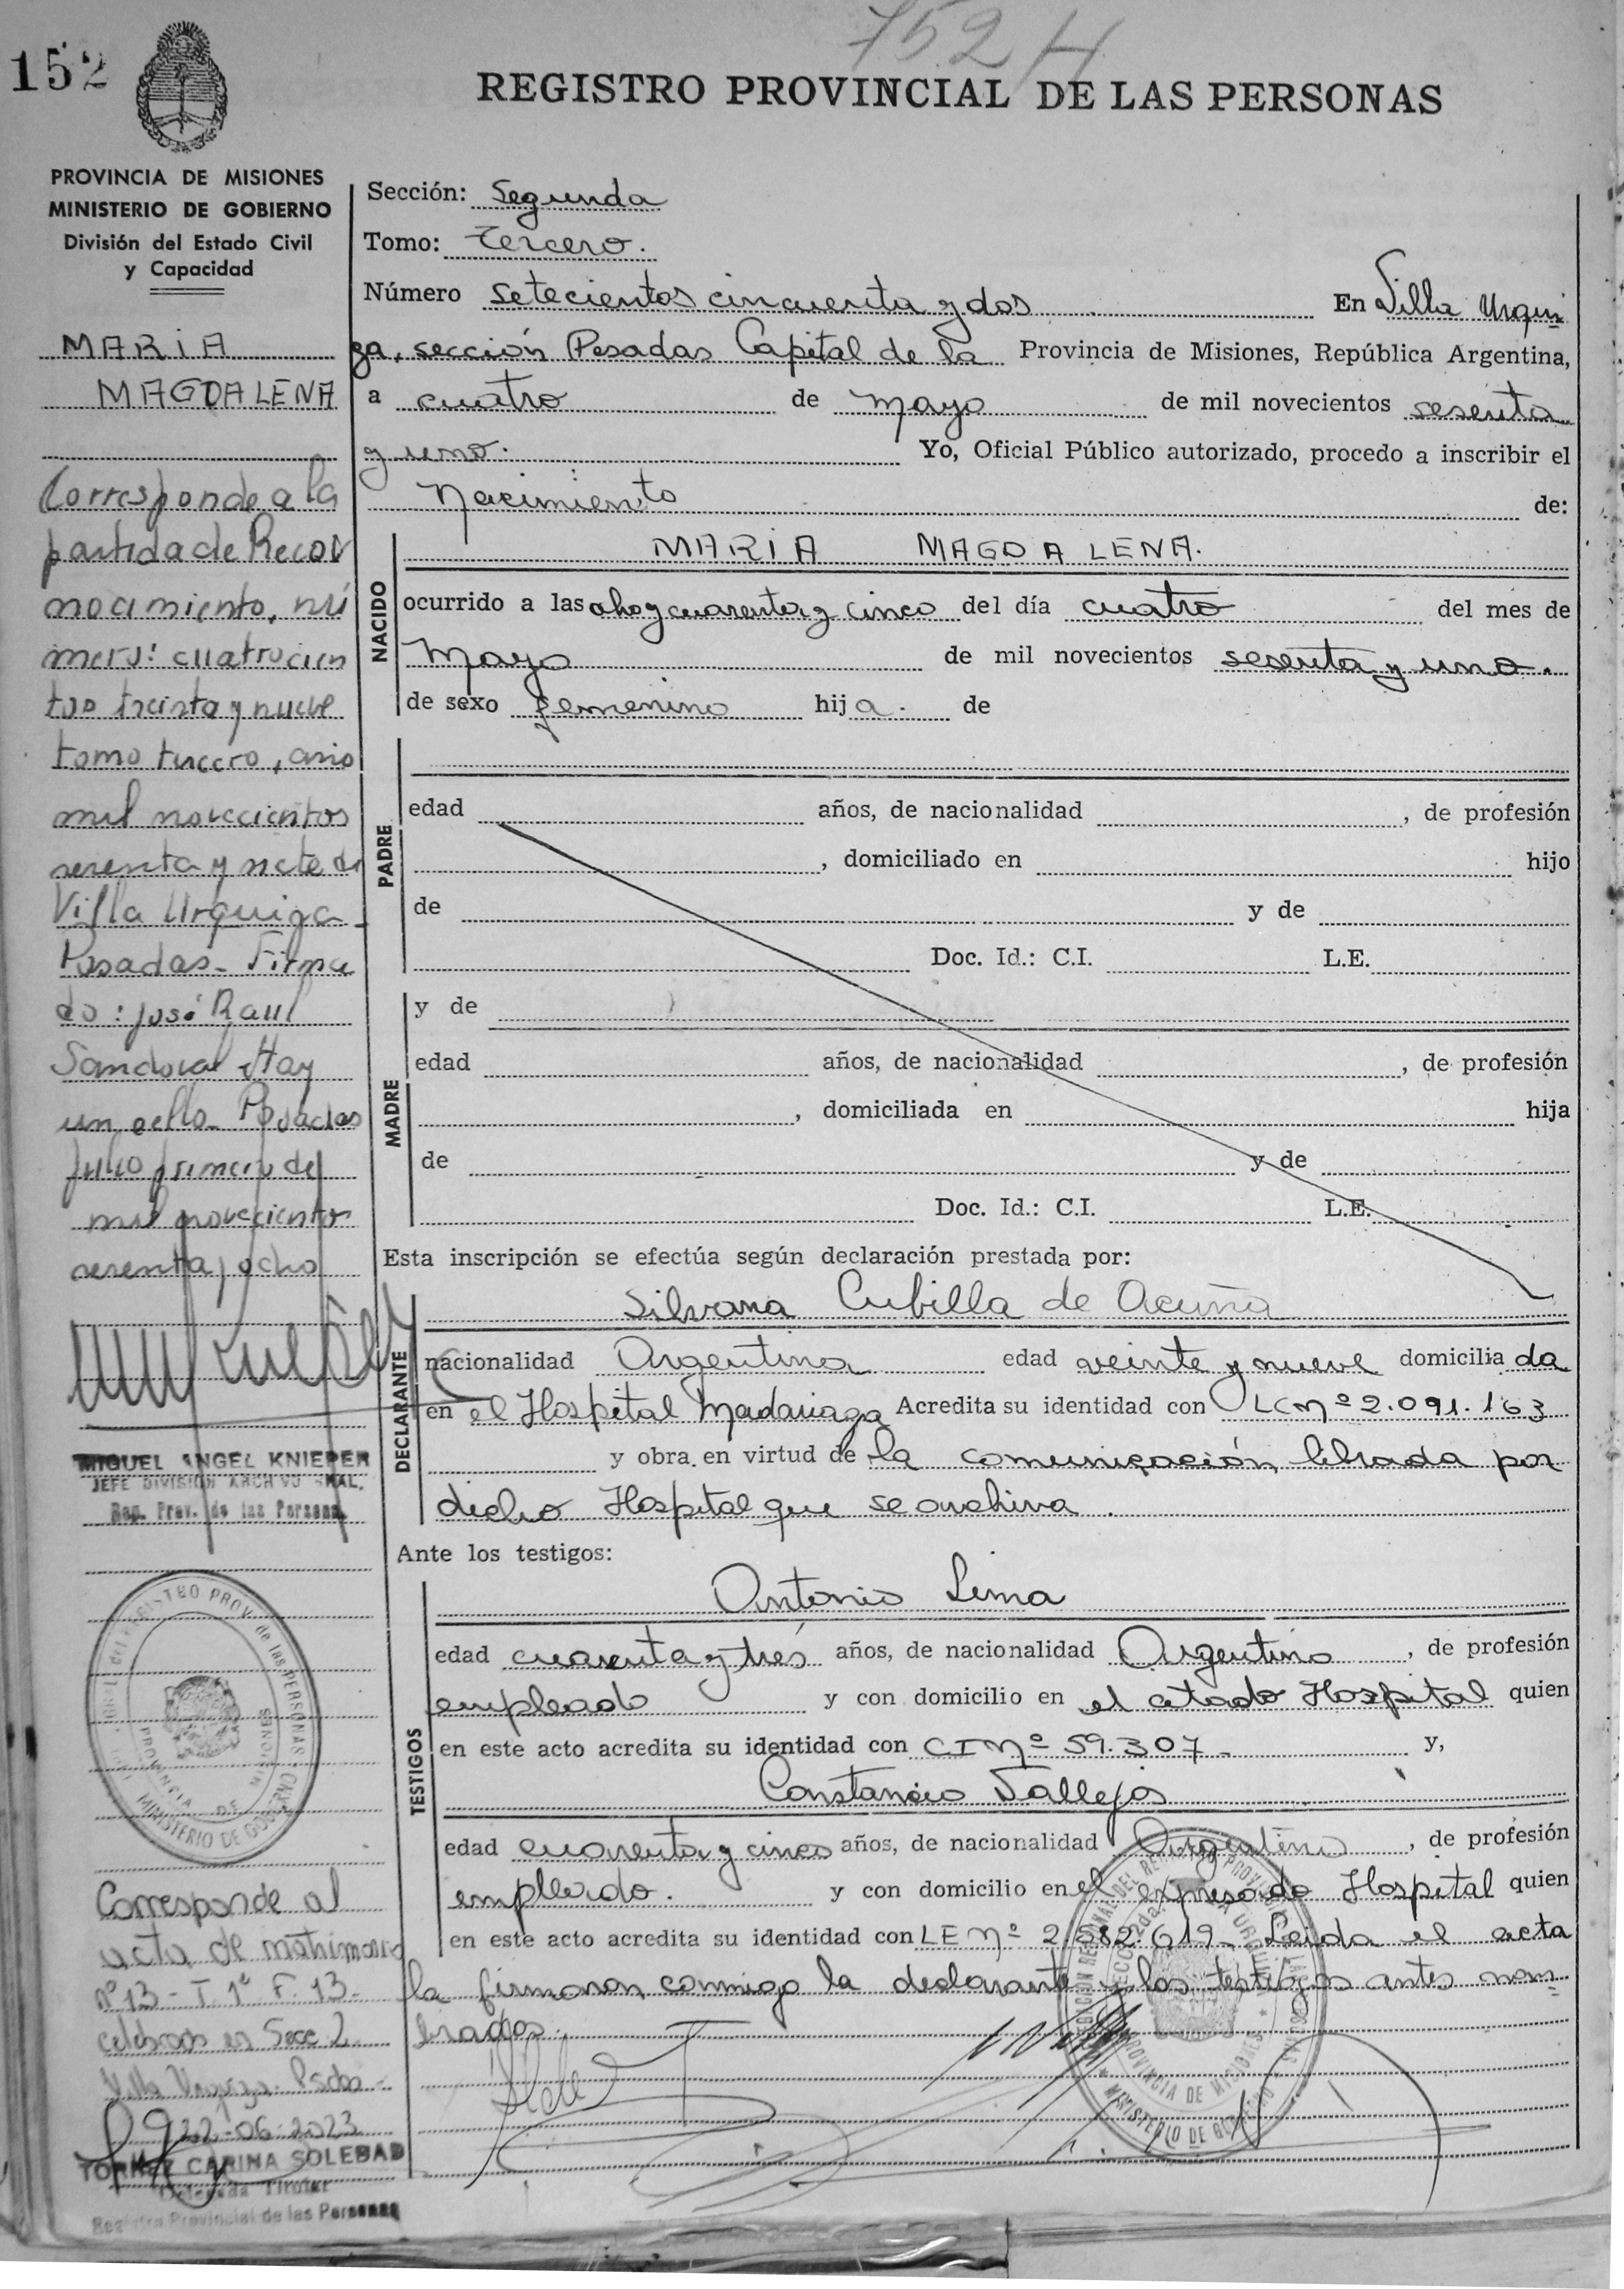 752 H
152
REGISTRO PROVINCIAL DE LAS PERSONAS
PROVINCIA DE MISIONES
MINISTERIO DE GOBIERNO
División del Estado Civil
y Capacidad
MARIA
MAGDALENA
Corresponde a la
partida de Recon
nocimiento, nú
mero: cuatrocien
tos treinta y nueve
tomo tercero, año
mil novecientos
sesenta y siete de
Villa Urquiza -
Posadas - Firma
do: José Raul
Sandoval Hay
un sello - Posadas
Julio primero de
mil novecientos
sesenta y ocho
MIGUEL ANGEL KNIEPER
JEFE DIVISION ARCHIVO GRAL.
Reg. Prov. de las Personas
REGISTRO PROV. de las PERSONAS
PROVINCIA DE MISIONES
MINISTERIO DE GOBIERNO
Corresponde al
acta de matrimonio
nº 13 - T 1º F. 13 -
celebrado en Secc 2
Villa Urquiza - Psdas -
22-06-2023
TORREZ CARINA SOLEDAD
Delegada Titular
Registro Provincial de las Personas
Sección: Segunda
Tomo: Tercero.
Número setecientos cincuenta y dos En Villa Urqui
za, sección Posadas Capital de la Provincia de Misiones, República Argentina,
a cuatro de mayo de mil novecientos sesenta
y uno. Yo, Oficial Público autorizado, procedo a inscribir el
Nacimiento de:
NACIDO
MARIA MAGDALENA.
ocurrido a las ocho y cuarenta y cinco del día cuatro del mes de
Mayo de mil novecientos sesenta y uno.
de sexo femenino hija. de
PADRE
edad años, de nacionalidad , de profesión
, domiciliado en hijo
de y de
Doc. Id.: C.I. L.E.
MADRE
y de
edad años, de nacionalidad , de profesión
, domiciliada en hija
de y de
Doc. Id.: C.I. L.E.
Esta inscripción se efectúa según declaración prestada por:
DECLARANTE
Silvana Cubilla de Acuña
nacionalidad Argentina edad veinte y nueve domiciliada
en el Hospital Madariaga Acredita su identidad con LC Nº 2.091.163
y obra en virtud de la comunicación librada por
dicho Hospital que se archiva.
Ante los testigos:
TESTIGOS
Antonio Lima
edad cuarenta y tres años, de nacionalidad Argentino , de profesión
empleado y con domicilio en el citado Hospital quien
en este acto acredita su identidad con CI Nº 59.307 - y,
Constancio Vallejos
edad cuarenta y cinco años, de nacionalidad Argentino , de profesión
empleado. y con domicilio en el expresado Hospital quien
en este acto acredita su identidad con LE Nº 2.582.619 - Leida el acta
la firmaron conmigo la declarante y los testigos antes nom
brados.
PROVINCIA DE MISIONES
MINISTERIO DE GOBIERNO